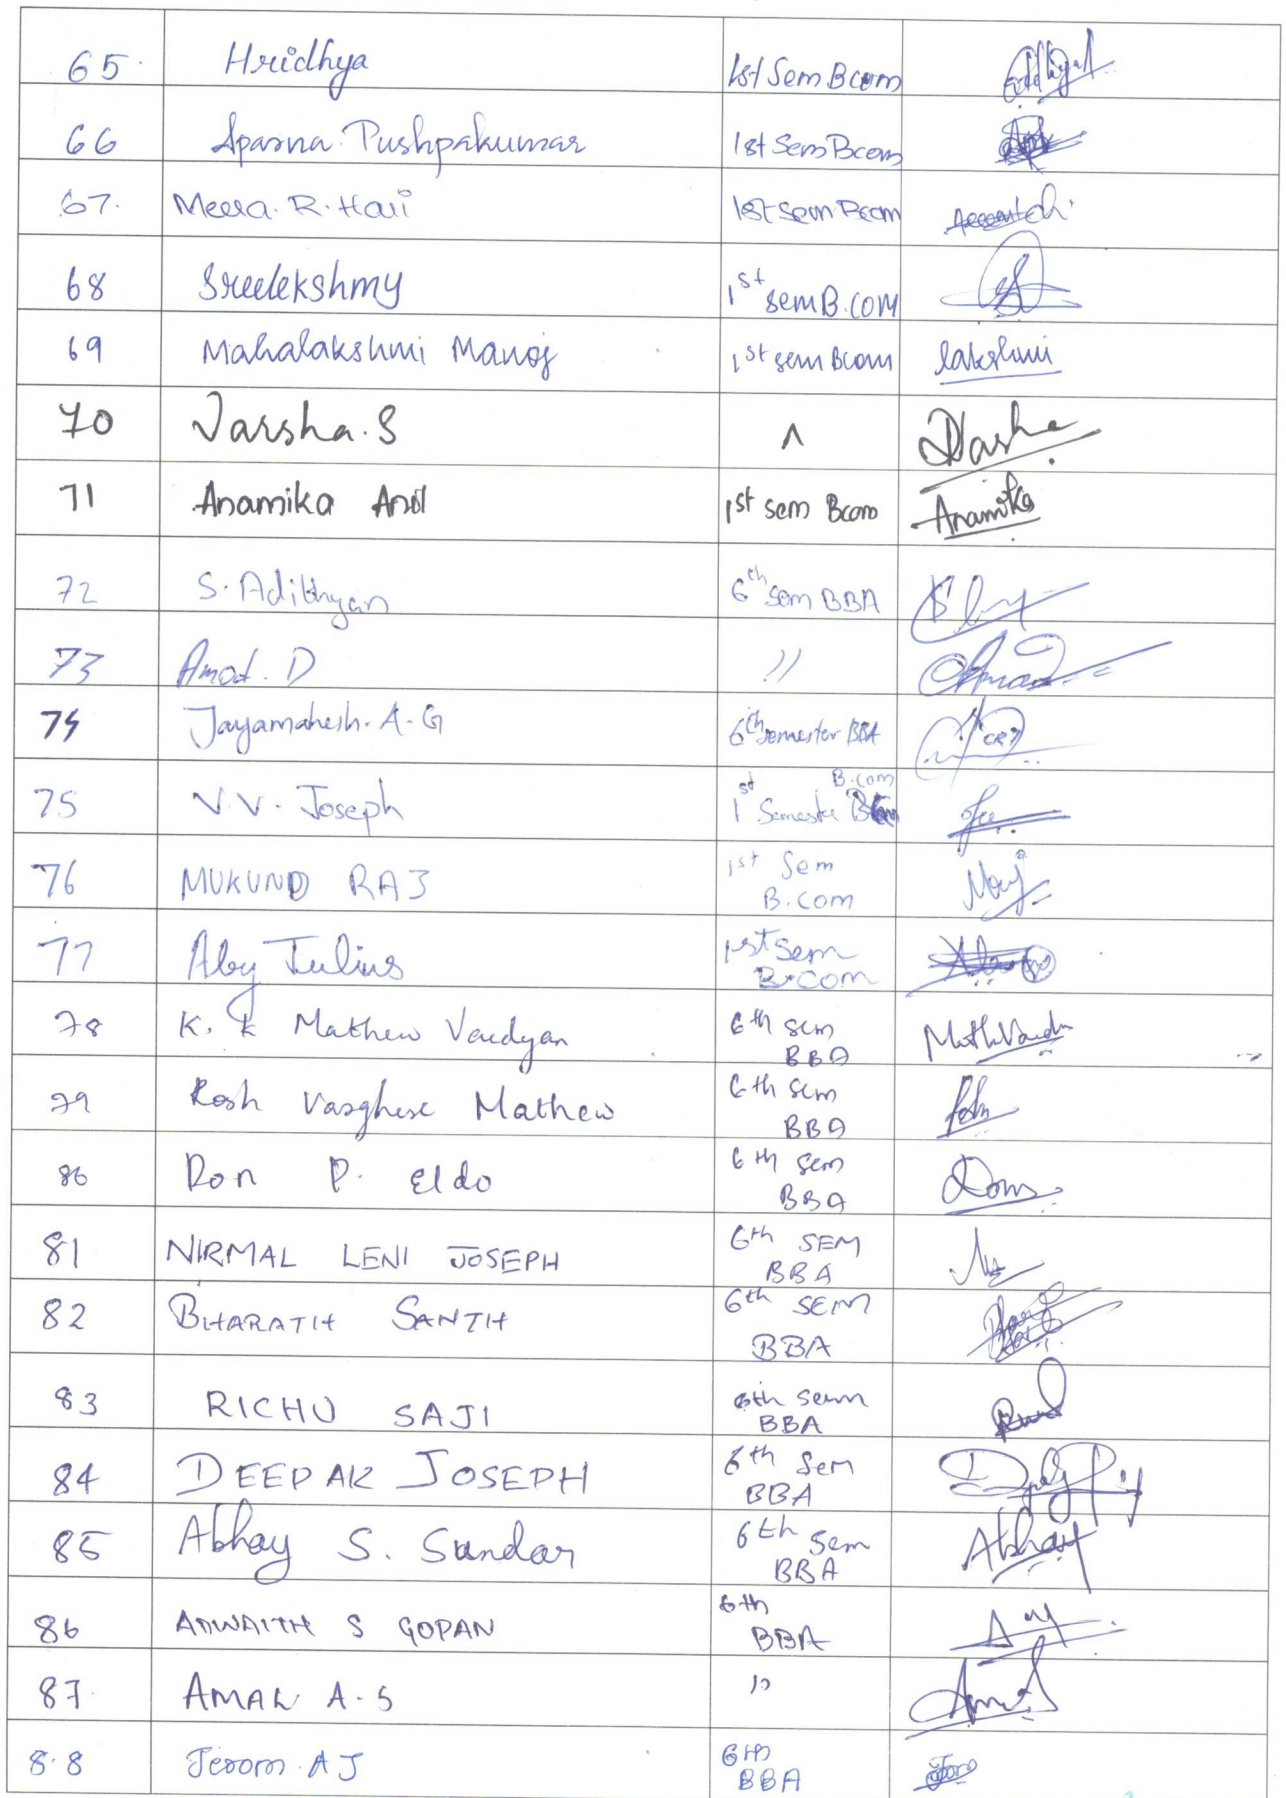 65. Hridhya 1st Sem Bcom
66 Aparna Pushpakumar 1st Sem Bcom
67. Meera. R. Hari 1st Sem Bcom
68 Sreelekshmy 1st sem B.COM
69 Mahalakshmi Manoj 1st sem Bcom lakshmi
70 Varsha. S ^
71 Anamika Anil 1st sem Bcom Anamika
72 S. Adithyan 6th Sem BBA
73 D //
74 Jayamahesh. A. G 6th semester BBA
75 V.V. Joseph 1st Semester B.com
76 MUKUND RAJ 1st Sem
B.com
77 Aby Julius 1st Sem
B.Com
78 K. K Mathew Vaidyan 6th sem
BBA
79 Rosh Varghese Mathew 6th sem
BBA
80 Ron P. Eldo 6th sem
BBA
81 NIRMAL LENI JOSEPH 6th SEM
BBA
82 BHARATH SANTH 6th SEM
BBA
83 RICHU SAJI 6th sem
BBA
84 DEEPAK JOSEPH 6th Sem
BBA
85 Abhay S. Sundar 6th Sem Abhay
BBA
86 ADWAITH S GOPAN 6th
BBA
87. AMAL A.S "
8.8 Jerom A J 6th
BBA